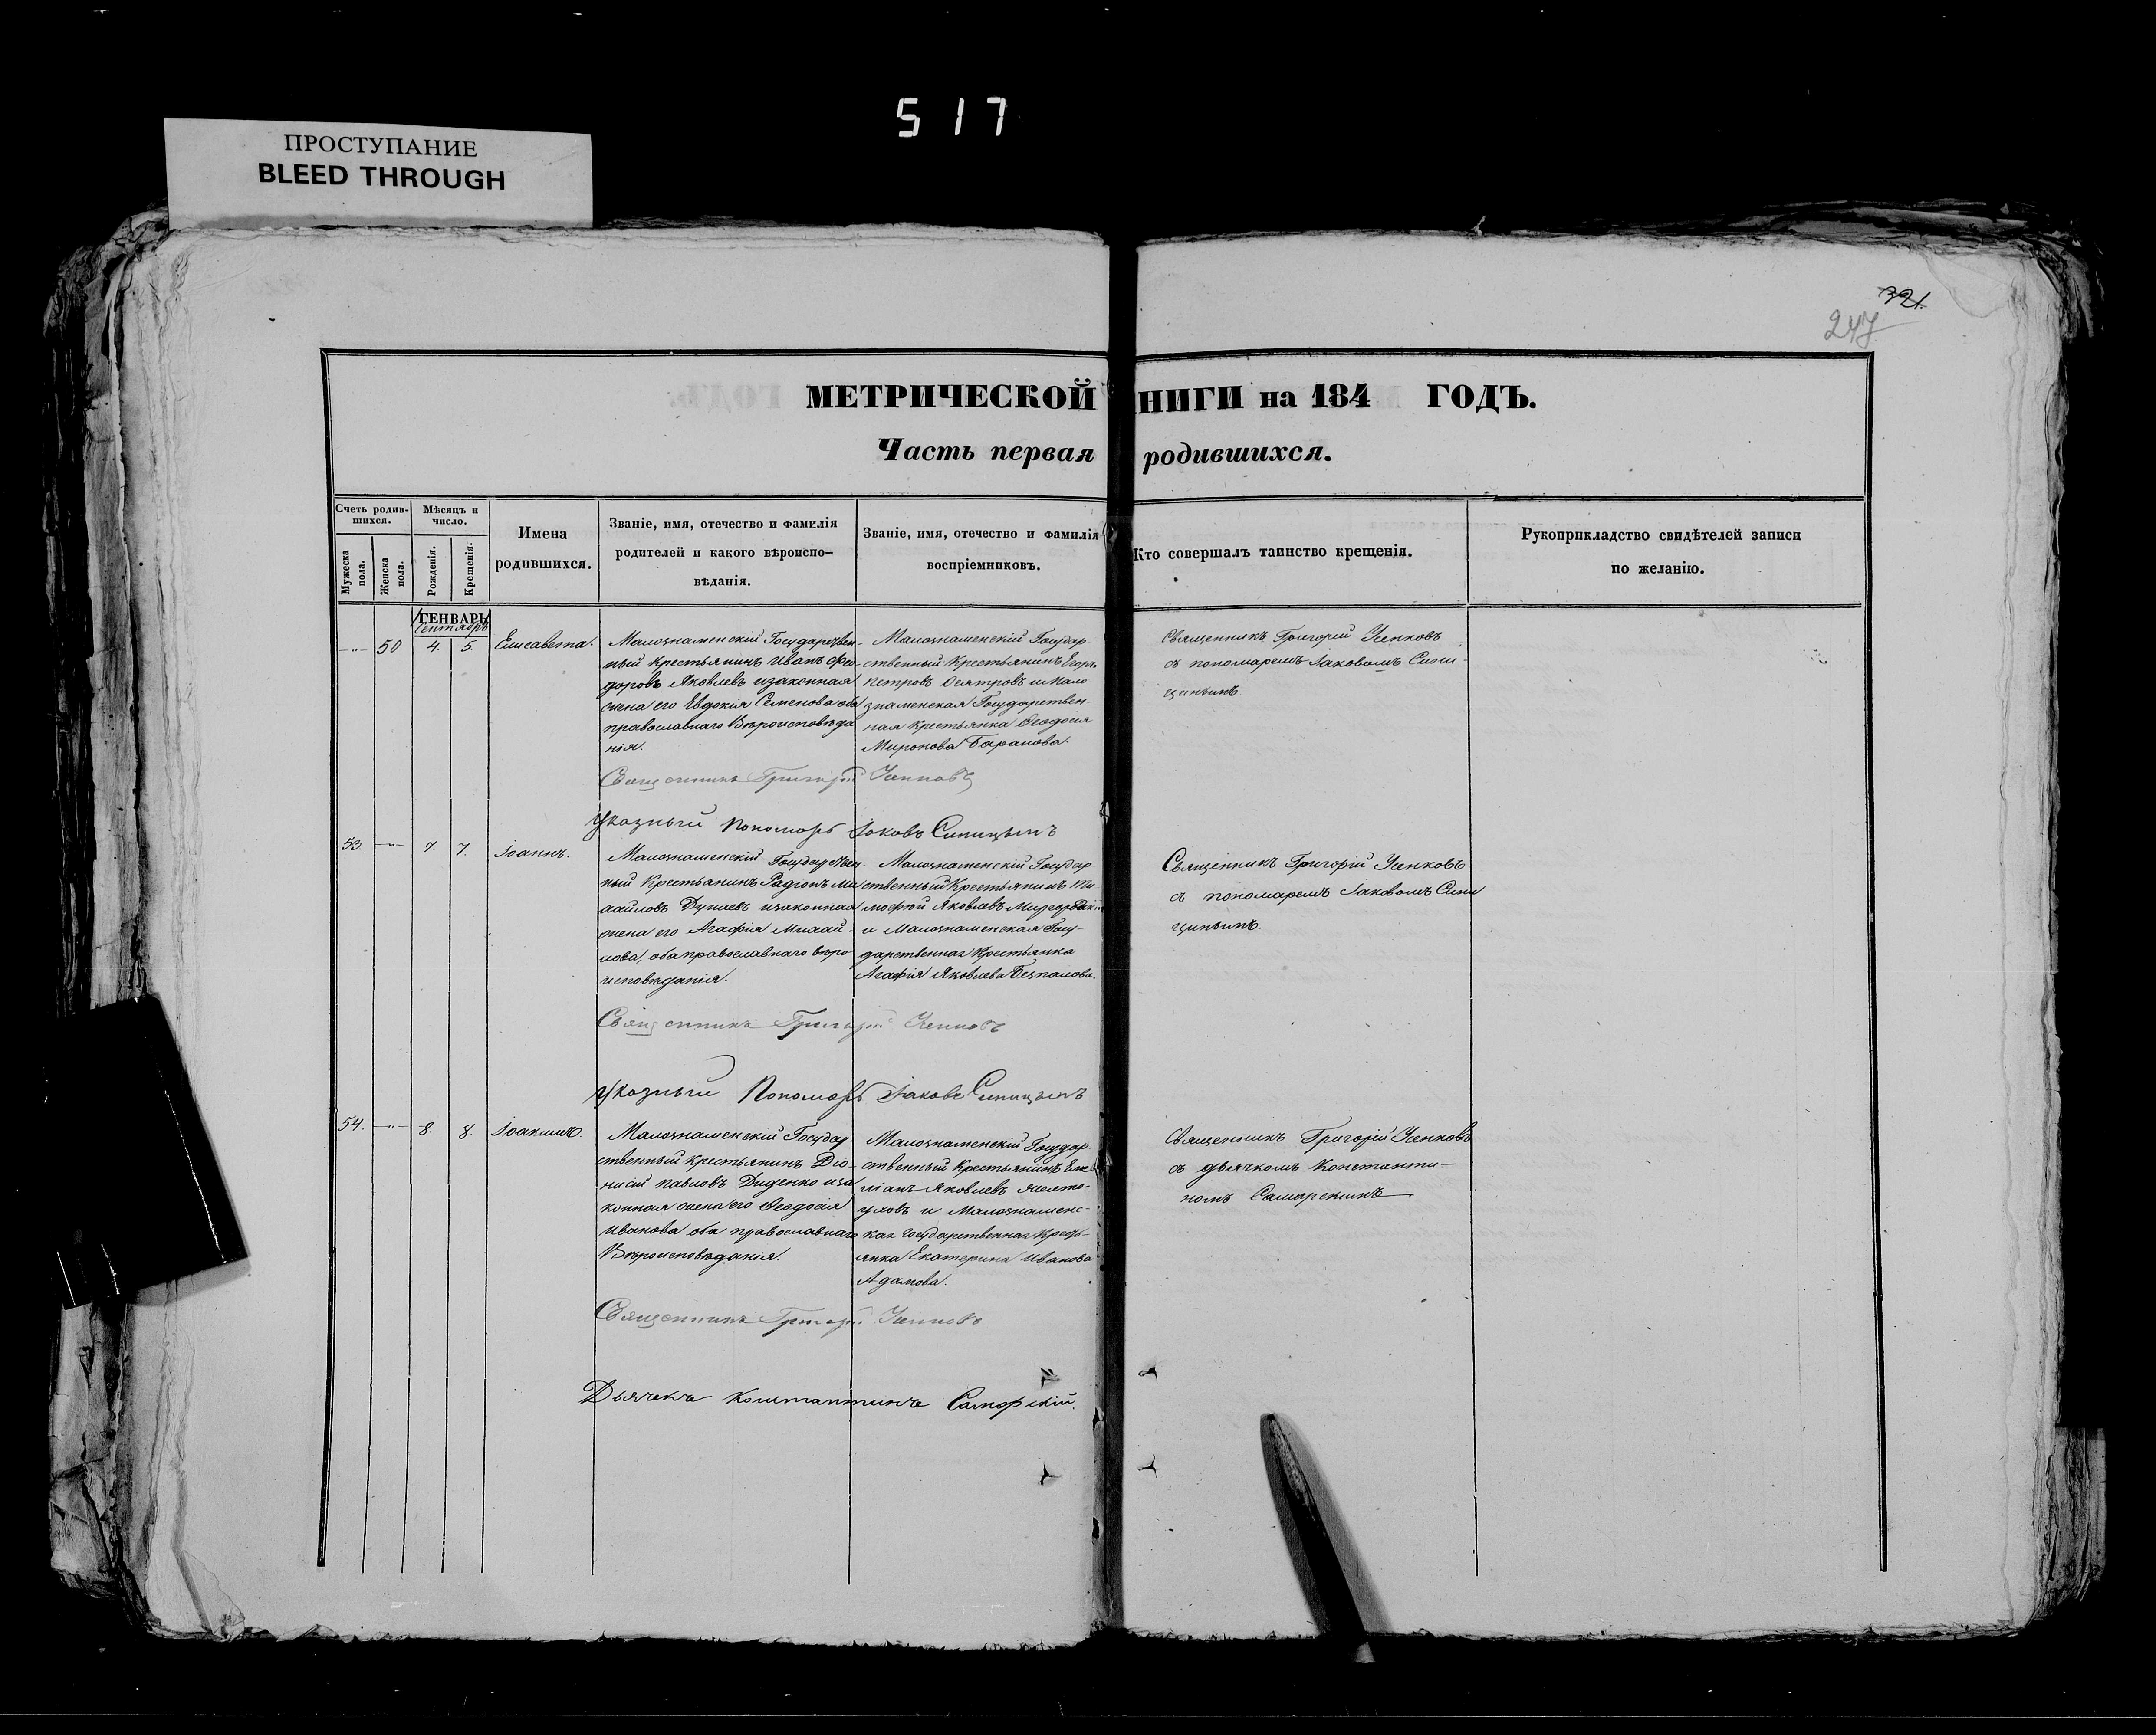 517
ПРОСТУПАНИЕ
BLEED THROUGH
321.
247
МЕТРИЧЕСКОЙ НИГИ на 184 ГОДЪ.
Часть первая родившихся.
Счетъ родив-
шихся.
Мужеска пола.
Женска пола.
Мѣсяцъ и
число.
Рожденія.
Крещенія.
Имена
родившихся.
Званіе, имя, отечество и фамилія
родителей и какого вѣроиспо-
вѣданія.
Званіе, имя, отечество и фамилія
воспріемниковъ.
Кто совершалъ таинство крещенія.
Рукоприкладство свидѣтелей записи
по желанію.
ГЕНВАРЬ
Сентябрь
50
4.
5.
Елисавета.
Малознаменскій Государствен-
ный Крестьянинъ Иванъ Фео-
доровъ Яковлевъ изаконная
жена его Евдокія Семенова оба
православнаго Вѣроисповѣда
нія.
Малознаменскій Государ
ственный Крестьянинъ Егоръ
Петровъ иМало
знаменская Государствен
ная Крестьянка Феодосія
Миронова Баранова.
Священникъ Григорій
съ пономаремъ Іаковомъ Сини-
цинымъ
Священникъ Григорій
Указный Пономарь Іаковъ Синицынъ
53.
7.
7.
Іоаннъ.
Малознаменскій Государствен-
ный Крестьянинъ Радіонъ Ми
хайловъ Дунаевъ изаконная
жена его Агафія Михай-
лова, оба православнаго вѣро
исповѣданія.
Малознаменскій Государ
ственный Крестьянинъ Ти-
мофей Яковлевъ
и Малознаменская Госу-
дарственная Крестьянка
Агафія Яковлева
Священникъ Григорій
съ пономаремъ Іаковомъ Сини
цинымъ.
Священникъ Григорій
Указный Пономарь Іаковъ Синицынъ
54.
8.
8.
Іоакимъ.
Малознаменскій Государ-
ственный Крестьянинъ Діо-
нисій Павловъ Диденко иза
конная жена его Феодосія
Иванова оба православнаго
Вѣроисповѣданія.
Малознаменскій Государ-
ственный Крестьянинъ Еме
ліанъ Яковлевъ
и Малознаменс-
кая Государственная Кресть-
янка Екатерина Иванова
Адамова.
Священникъ Григорій
съ дьячкомъ Константи-
номъ Самарскимъ
Священникъ Григорій
Дьячекъ Константинъ Самарскій.